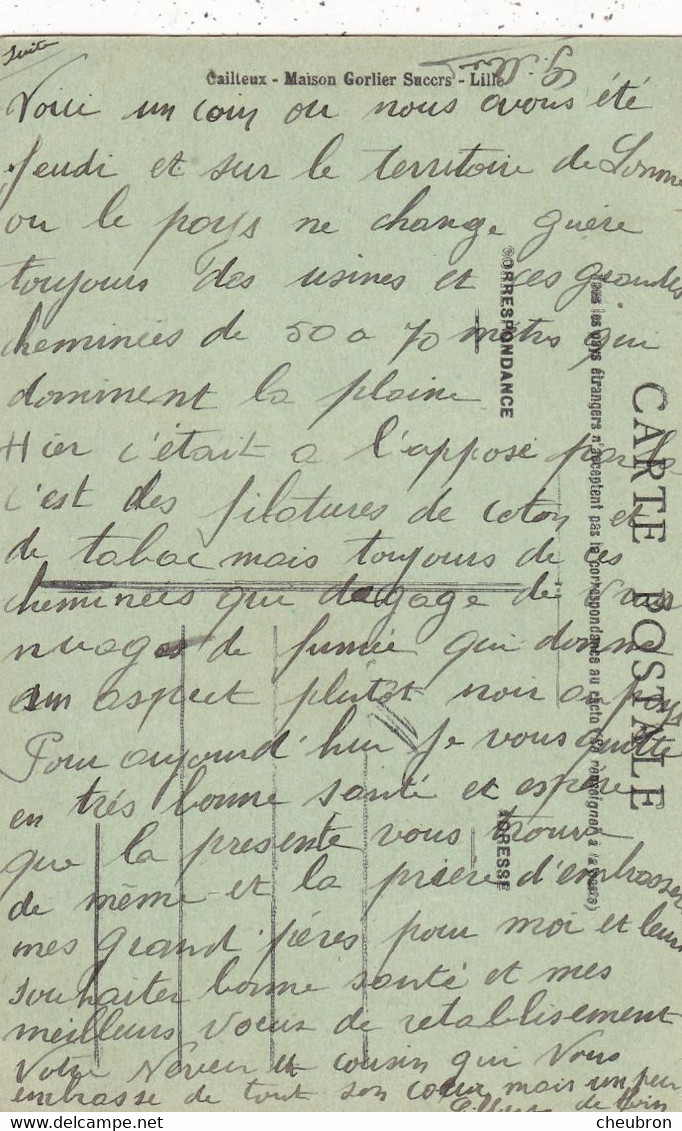 Suite
Cailteux - Maison Gorlier Succrs - Lille
Voici un coin ou nous avons été
Jeudi et sur le territoire de Lomme
ou le pays ne change guère
toujours des usines et ces grandes
cheminées de 50 a 70 mètres qui
dominent la plaine
Hier c'était a l'apposé par la
c'est des filatures de coton et
de tabac mais toujours de ces
cheminées qui dégage de vrais
nuages de fumée qui donne
un aspect plutot noir au pays
Pour aujourd'hui Je vous quitte
en trés bonne santé et espère
que la presente vous trouve
de même et la prière d'embrasser
mes grand pères pour moi et leurs
souhaiter bonne santé et mes
meilleurs voeux de retablisement
Votre Neveu et cousin qui Vous
embrasse de tout son coeur mais un peu
de loin
CARTE POSTALE
Tous les pays étrangers n'acceptent pas la correspondance au recto (se renseigner à la Poste)
CORRESPONDANCE
ADRESSE
© cheubron